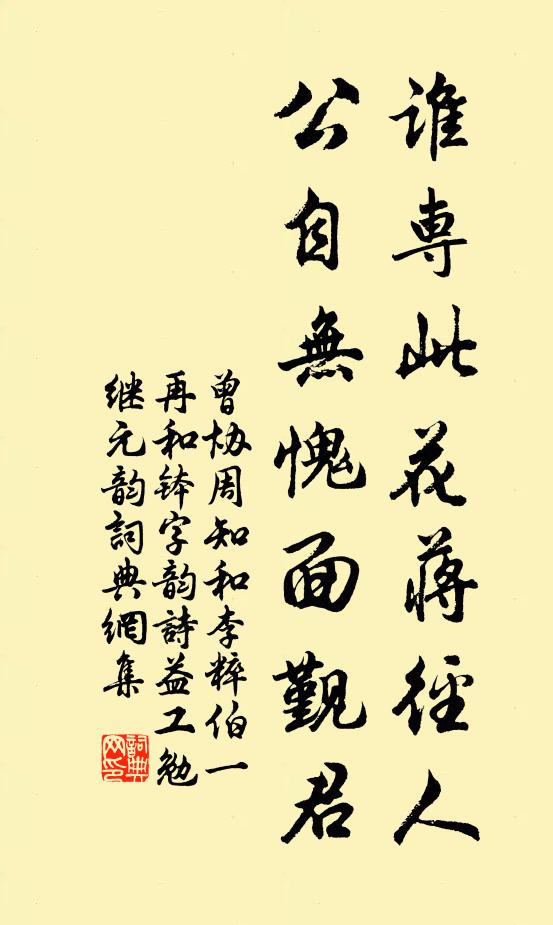 誰專此花蔣徑人
公自無愧面觐君
曾协周知和李粹伯一
再和钵字韵詩益工勉
继元韵詞典網集
詞典
网印